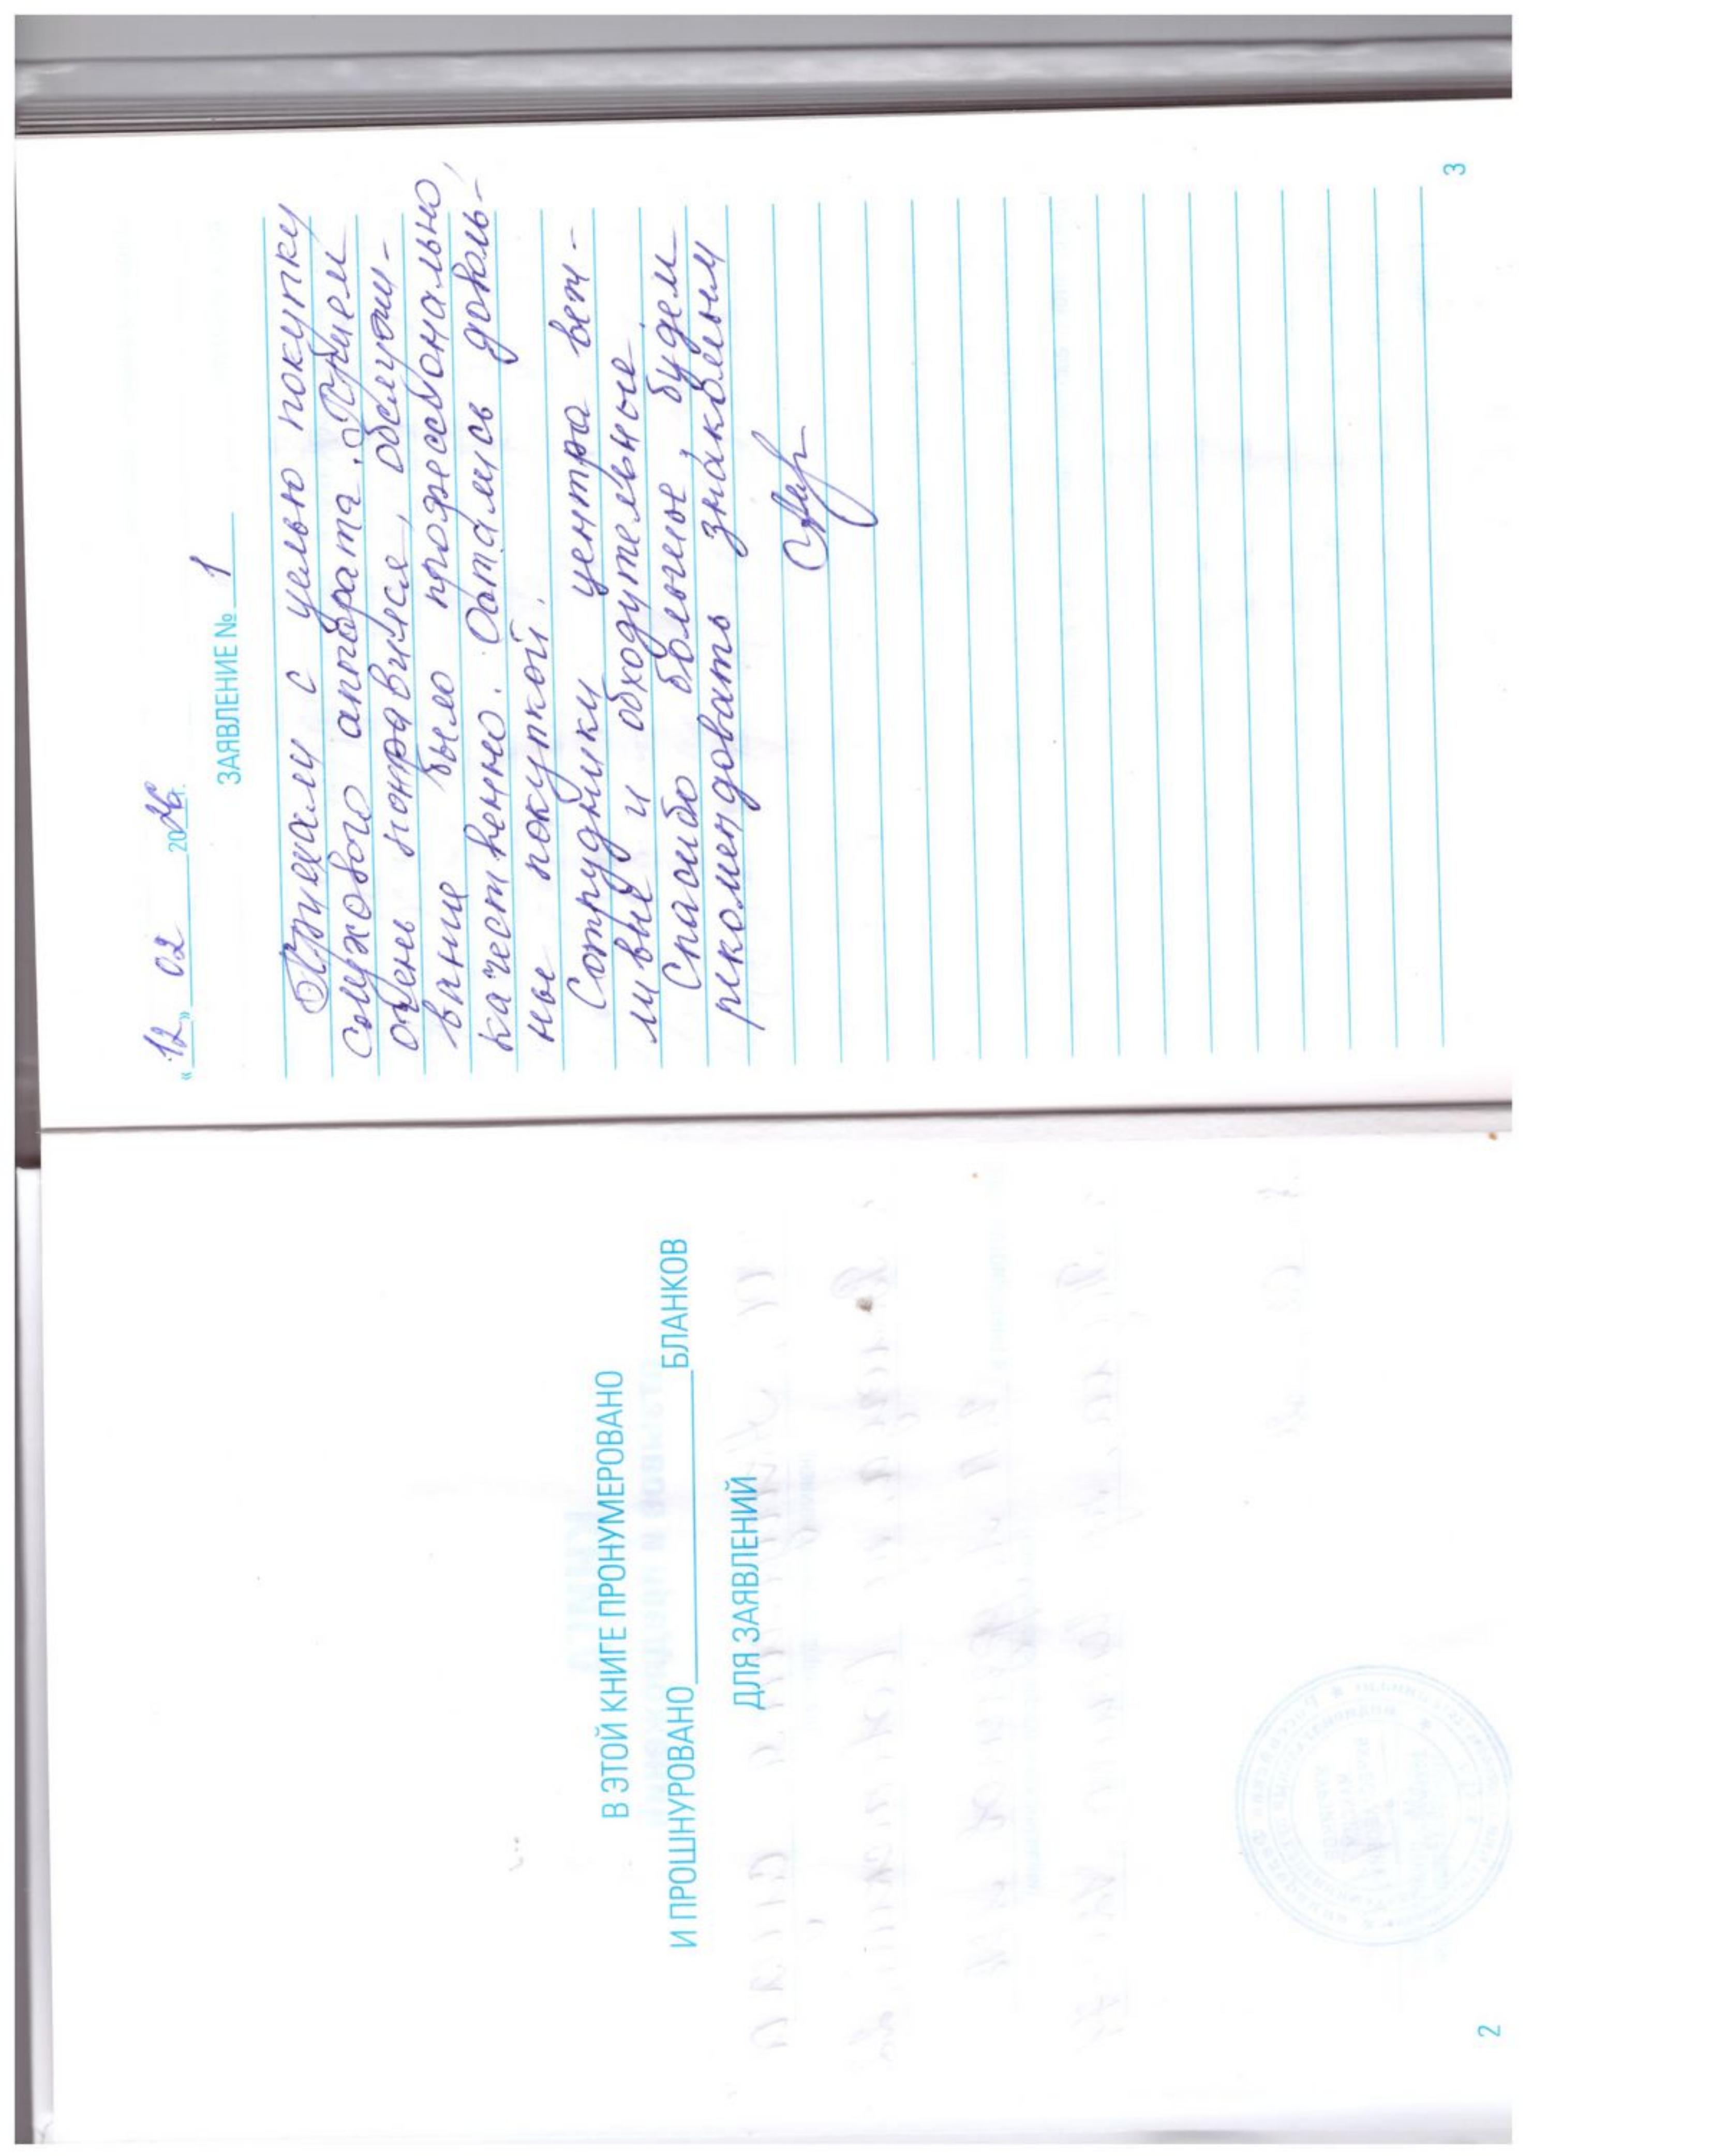 В ЭТОЙ КНИГЕ ПРОНУМЕРОВАНО
И ПРОШНУРОВАНО БЛАНКОВ
ДЛЯ ЗАЯВЛЕНИЙ
2
« 12 » 02 2026 г.
ЗАЯВЛЕНИЕ № 1
Приехали с целью покупки
слухового аппарата. Прием
очень понравился, обслужи-
вание было профессионально,
качественно. Остались доволь-
ны покупкой.
Сотрудники центра веж-
ливые и обходительные.
Спасибо большое, будем
рекомендовать знакомым
3